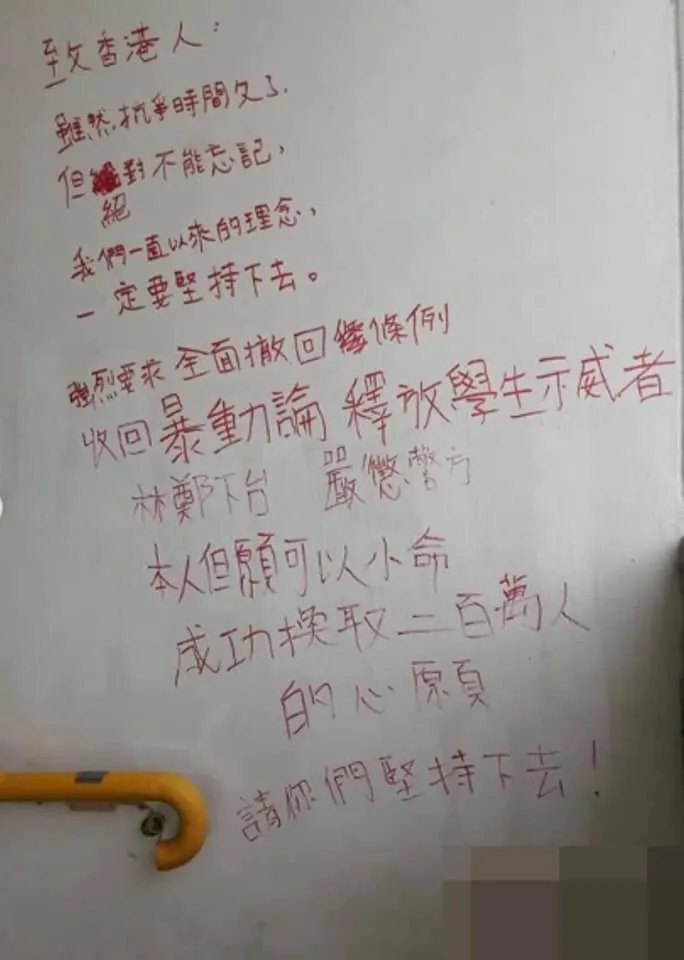 致香港人：
雖然抗爭時間久了.
但絕對不能忘記，
我們一直以來的理念，
一定要堅持下去。
強烈要求 全面撤回條例
收回暴動論 釋放學生示威者
林鄭下台 嚴懲警方
本人但願可以小命
成功換取二百萬人
的心願
請你們堅持下去！